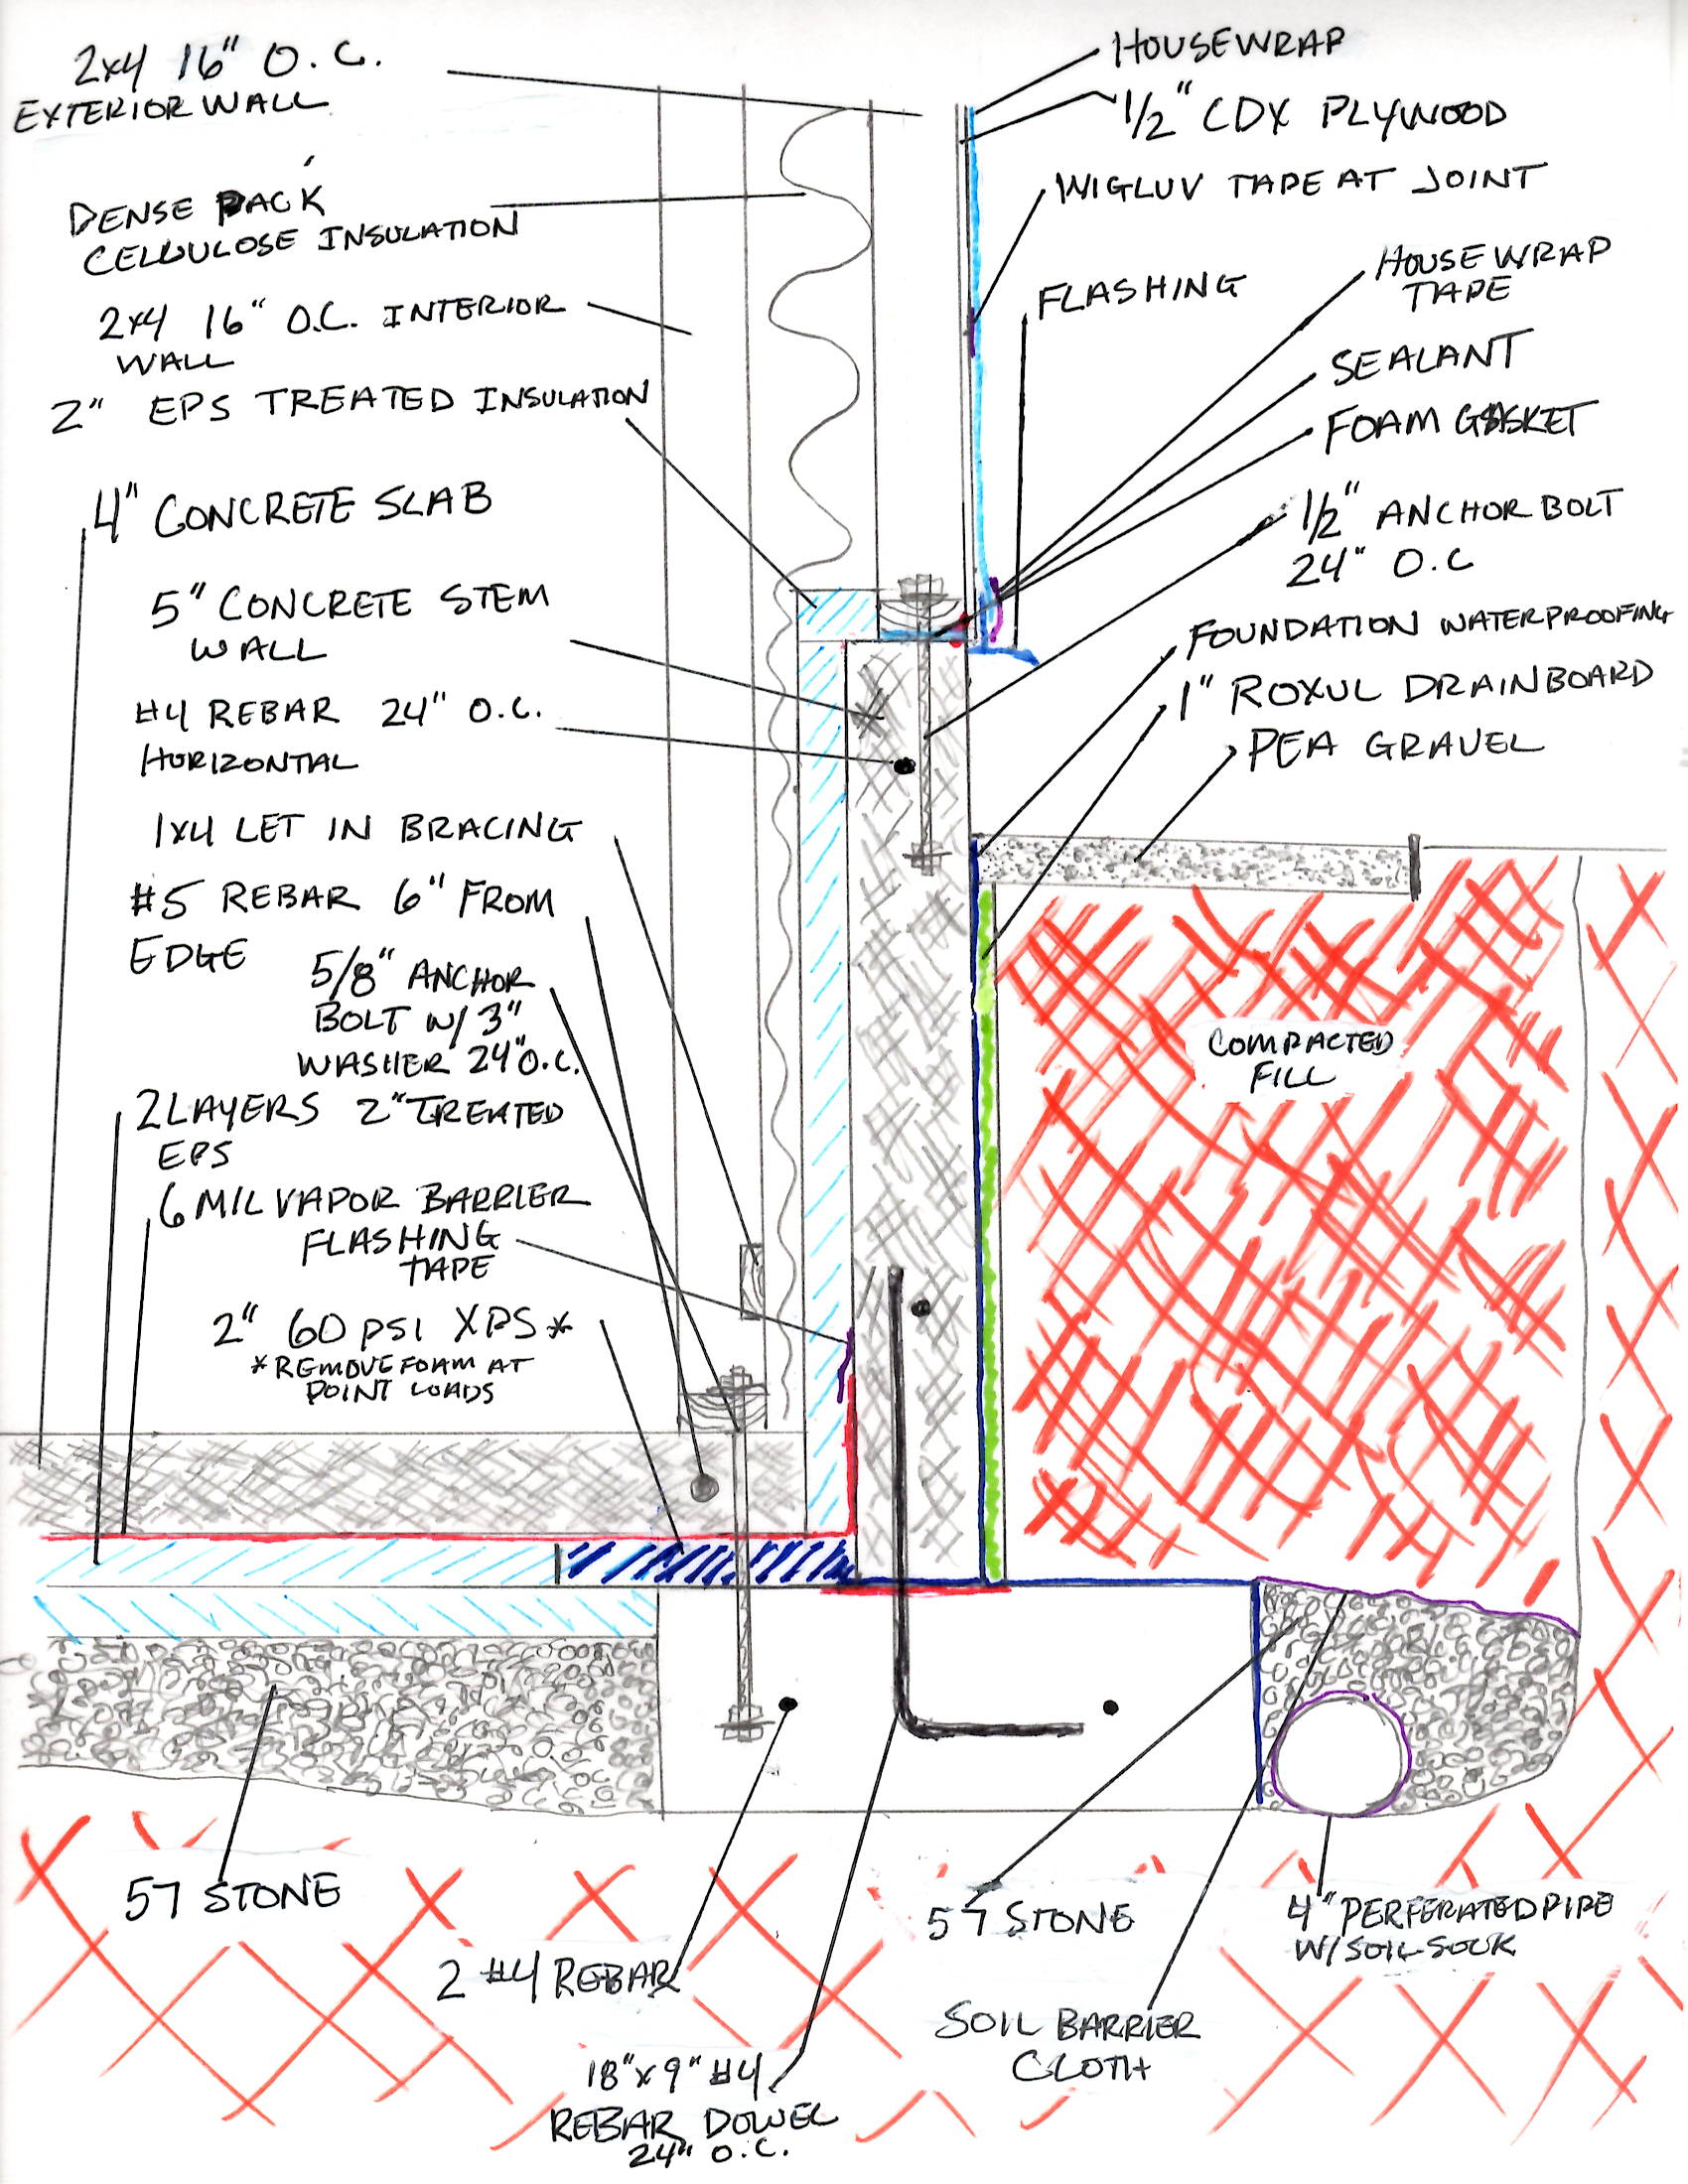 2x4 16" O.C.
EXTERIOR WALL
DENSE PACK
CELLULOSE INSULATION
2x4 16" O.C. INTERIOR
WALL
2" EPS TREATED INSULATION
4" CONCRETE SLAB
5" CONCRETE STEM
WALL
#4 REBAR 24" O.C.
HORIZONTAL
1x4 LET IN BRACING
#5 REBAR 6" FROM
EDGE
5/8" ANCHOR
BOLT W/ 3"
WASHER 24" O.C.
2 LAYERS 2" TREATED
EPS
6 MIL VAPOR BARRIER
FLASHING
TAPE
2" 60 PSI XPS *
* REMOVE FOAM AT
POINT LOADS
HOUSEWRAP
1/2" CDX PLYWOOD
WIGLUV TAPE AT JOINT
HOUSEWRAP
TAPE
FLASHING
SEALANT
FOAM GASKET
1/2" ANCHOR BOLT
24" O.C
FOUNDATION WATERPROOFING
1" ROXUL DRAINBOARD
PEA GRAVEL
COMPACTED
FILL
57 STONE
2 #4 REBAR
18" x 9" #4
REBAR DOWEL
24" O.C.
57 STONE
SOIL BARRIER
CLOTH
4" PERFERATED PIPE
W/ SOIL SOCK